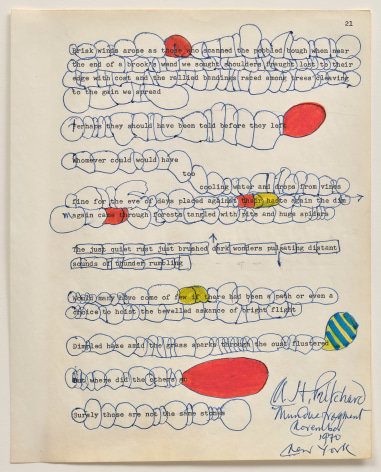 21
Brisk winds arose as those who scanned the pebbled bough when near
the end of a brook's wend we sought shoulders fraught lost to their
edge with cost and the rallied bandings raced among trees cleaving
to the gain we spread
Perhaps they should have been told before they left
Whomever could would have
too
cooling water and drops from vines
fine for the eve of days placed against their hats again the dim
again came through forests tangled with rite and huge spiders
The just quiet rust just brushed dark wonders pulsating distant
sounds of thunder rumbling
Would many have come of few if there had been a path or even a
choice to hoist the bevelled askance of bright flight
Dimpled haze amid the grass sparks through the oust flustered
But where did the others go
Surely those are not the same stones
A. H. Pritchard
Mundus fragment
November
1970
New York